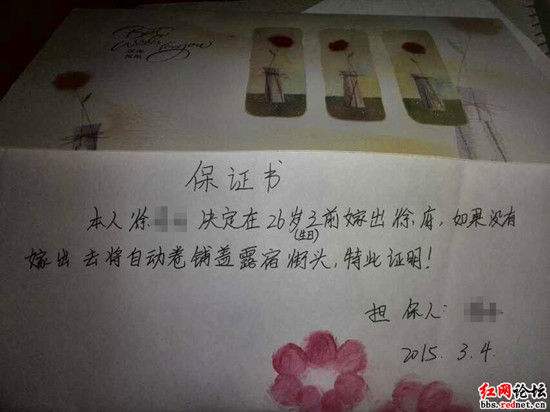 Best
Wishes
for you
保证书
本人徐 决定在26岁之前嫁出徐府,如果没有
(生日)
嫁出去将自动卷铺盖露宿街头,特此证明!
担保人:
2015.3.4.
红网论坛
bbs.rednet.cn